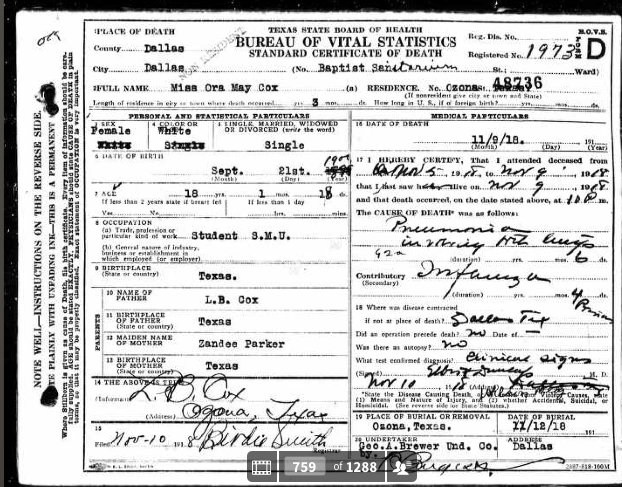 PLACE OF DEATH
TEXAS STATE BOARD OF HEALTH
BUREAU OF VITAL STATISTICS
STANDARD CERTIFICATE OF DEATH
Reg. Dis. No.
B.O.V.S.
FORM D
County Dallas
Registered No. 1973
City Dallas (No. Baptist Sanitarium St.; Ward)
48736
FULL NAME Miss Ora May Cox (a) RESIDENCE. No. Ozona, Texas
(If nonresident give city or town and State)
Length of residence in city or town where death occurred yrs. 3 mos. ds. How long in U. S., if of foreign birth? yrs. mos. ds.
PERSONAL AND STATISTICAL PARTICULARS
3 SEX
Female
4 COLOR OR RACE
White
5 SINGLE, MARRIED, WIDOWED OR DIVORCED (write the word)
Single
6 DATE OF BIRTH
Sept. 21st. 1900
(Month) (Day) (Year)
7 AGE
18 1 18 ds.
If less than 2 years state if breast fed
If less than 1 day
Yes No hrs. mins.
8 OCCUPATION
(a) Trade, profession or
particular kind of work Student S.M.U.
(b) General nature of industry,
business or establishment in
which employed (or employer)
9 BIRTHPLACE
(State or country) Texas.
PARENTS
10 NAME OF FATHER L.B. Cox
11 BIRTHPLACE OF FATHER
(State or country) Texas
12 MAIDEN NAME OF MOTHER Zandee Parker
13 BIRTHPLACE OF MOTHER
(State or country) Texas
14 THE ABOVE IS TRUE
(Informant) L. B. Cox
(Address) Ozona, Texas
15
Filed Nov-10 1918 Birdie Smith
Registrar
MEDICAL PARTICULARS
16 DATE OF DEATH
11/9/18. 191
(Month) (Day) (Year)
17 I HEREBY CERTIFY, That I attended deceased from
Nov 5 1918, to Nov 9 1918
that I last saw h alive on Nov 9 1918
and that death occurred, on the date stated above, at 10 P m
The CAUSE OF DEATH was as follows:
Pneumonia
involving both lungs
(duration) yrs. mos. 6 ds.
Contributory Influenza
(Secondary)
(duration) yrs. mos. 4 ds.
18 Where was disease contracted
if not at place of death? Dallas Tex
Did an operation precede death? no Date of
Was there an autopsy? no
What test confirmed diagnosis? Clinical signs
(Signed) M. D.
Nov 10 18 (Address)
*State the Disease Causing Death, or in deaths from Violent Causes, state
(1) Means and Nature of Injury, and (2) whether Accidental, Suicidal, or
Homicidal. (See reverse side for State Statutes.)
19 PLACE OF BURIAL OR REMOVAL
Ozona, Texas.
DATE OF BURIAL
11/12/18 191
20 UNDERTAKER
Geo.A.Brewer Und. Co.
ADDRESS
Dallas
NOTE WELL—INSTRUCTIONS ON THE REVERSE SIDE.
WRITE PLAINLY WITH UNFADING INK—THIS IS A PERMANENT RECORD
759 of 1288
2687-818-100M